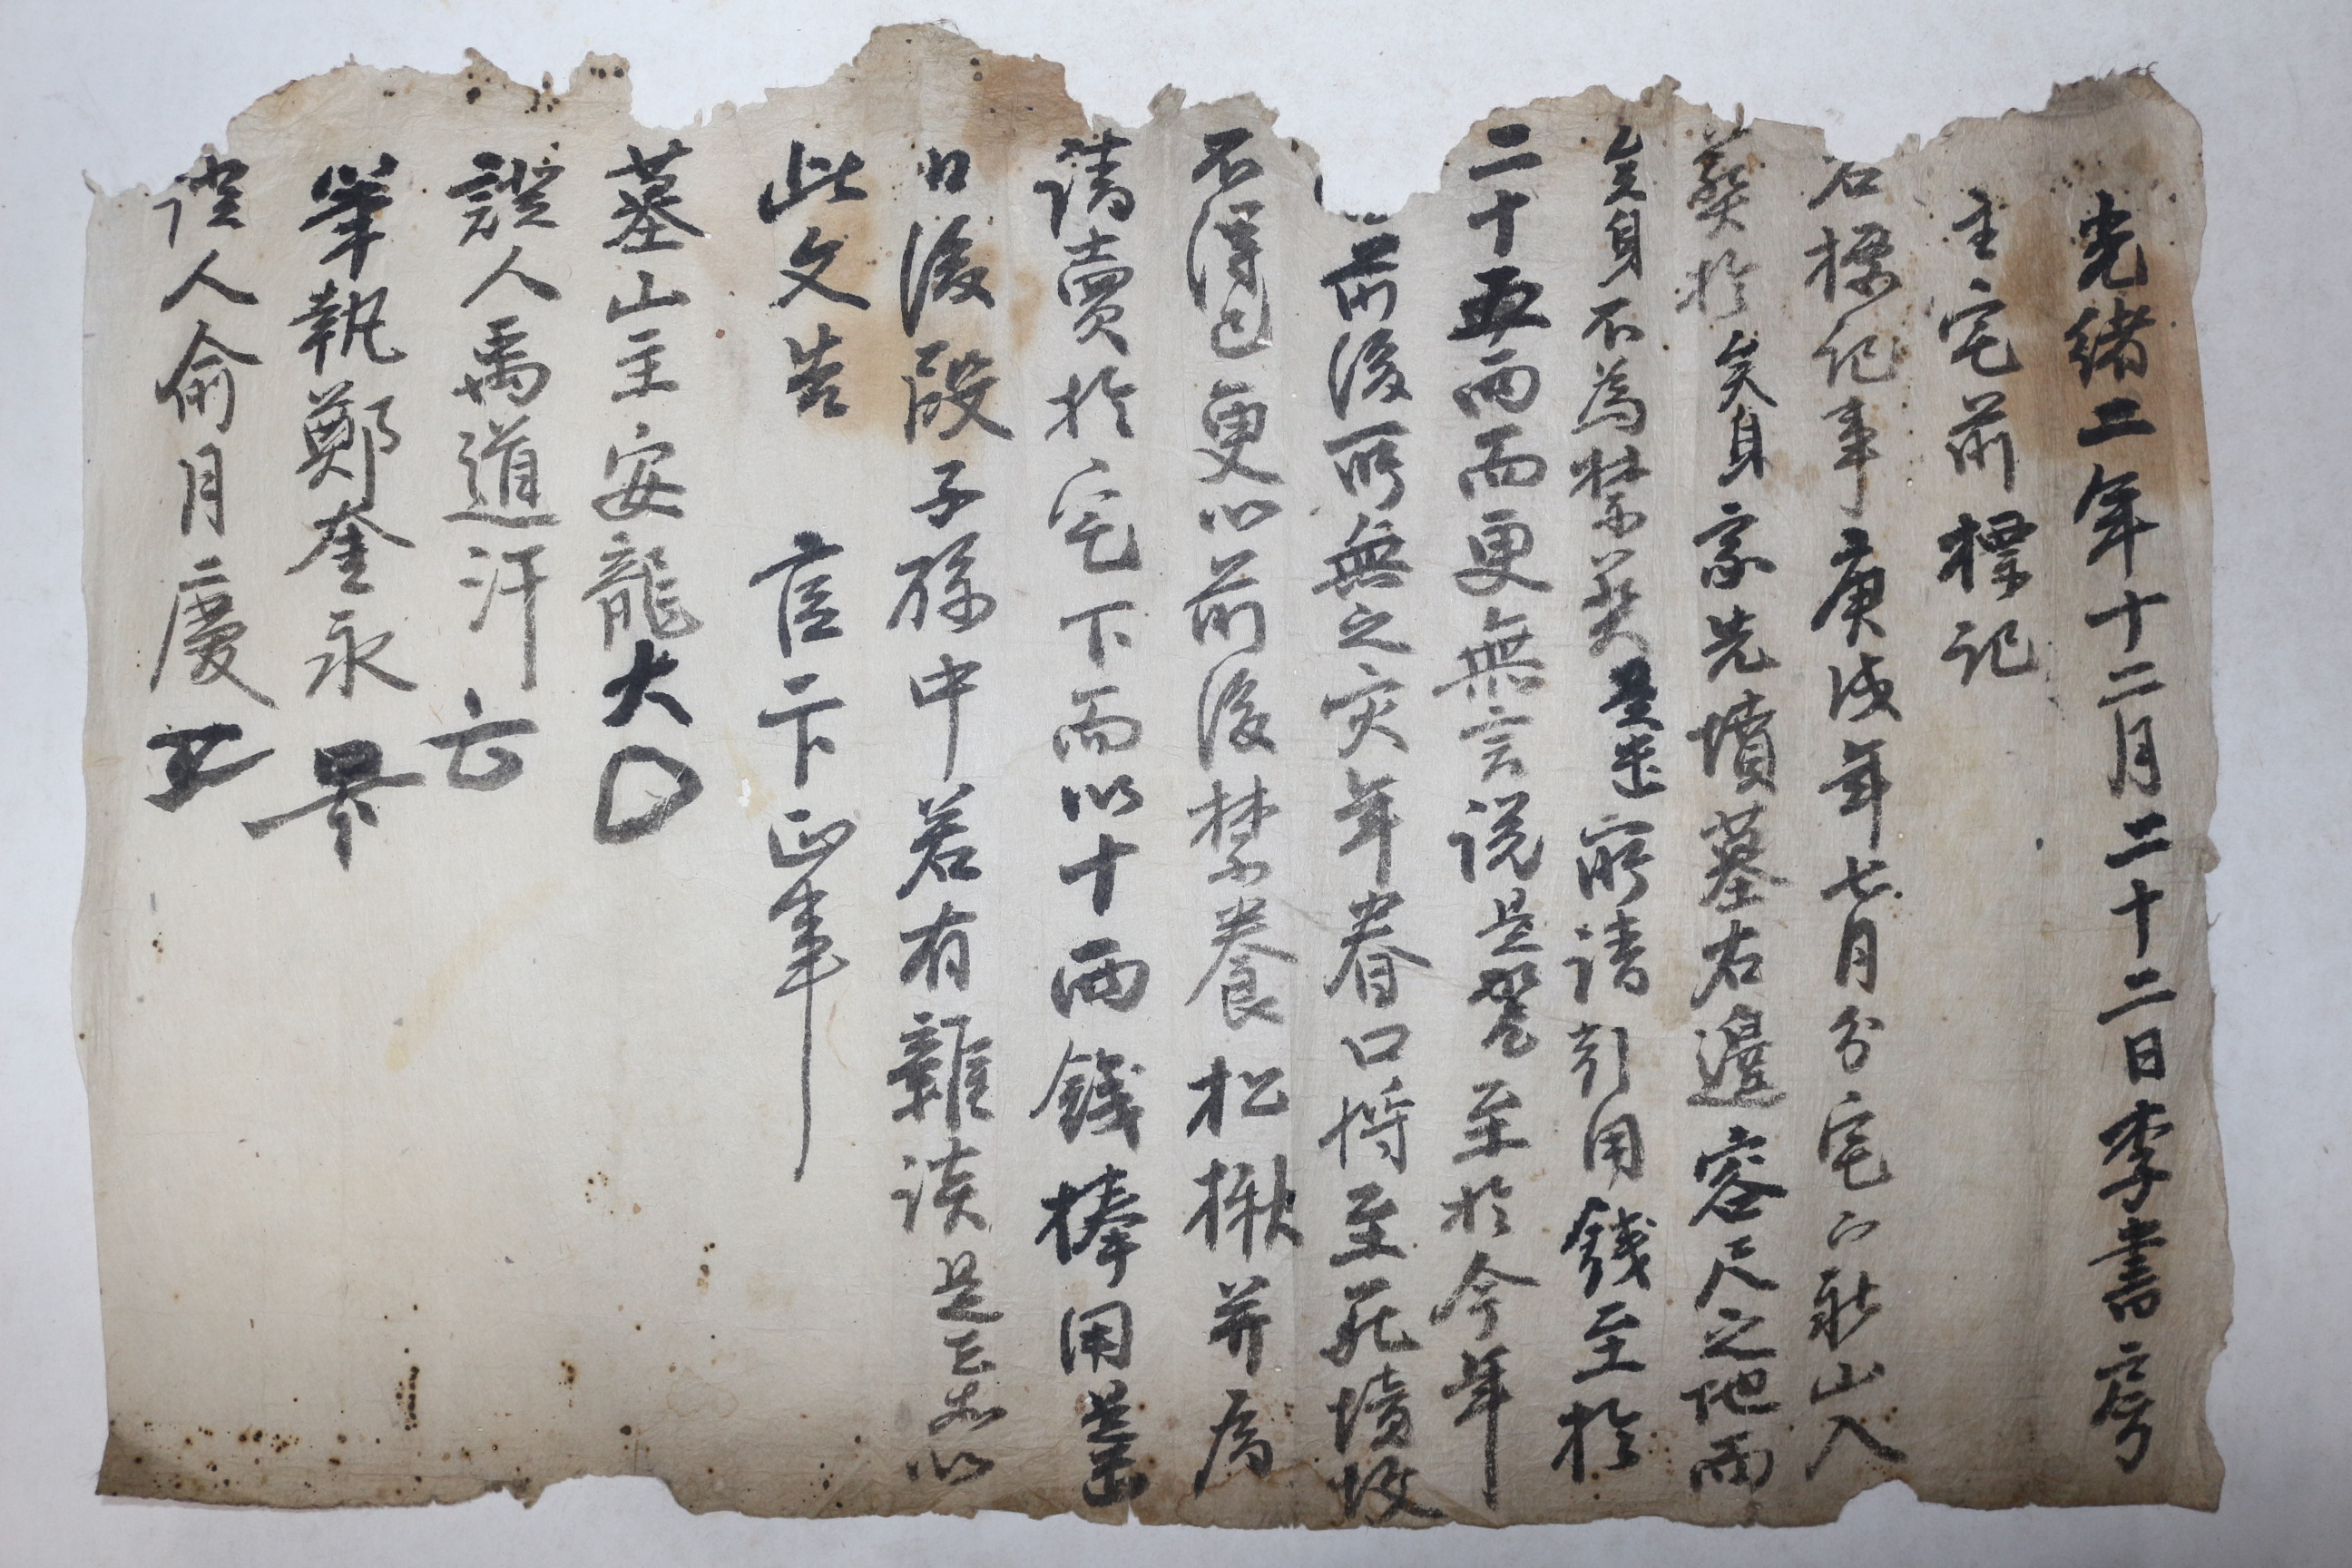 光緖二年十二月二十二日李書房
主宅前標記
右標記事庚戌年七月分宅山所山入
葬於矣身家先墳墓右邊容尺之地而
矣身不爲禁葬是遣窃請引用錢至於
二十五兩而更無言說是乎尼至於今年
前後所無之灾年眷口將至死境故
不得已更以前後禁養松楸并爲
請賣於宅下而以十兩錢捧用是遣
日後段子孫中若有雜談是去等以
此文告官卞正事
墓山主安龍大
證人禹道汗
筆執鄭奎永
證人俞月慶